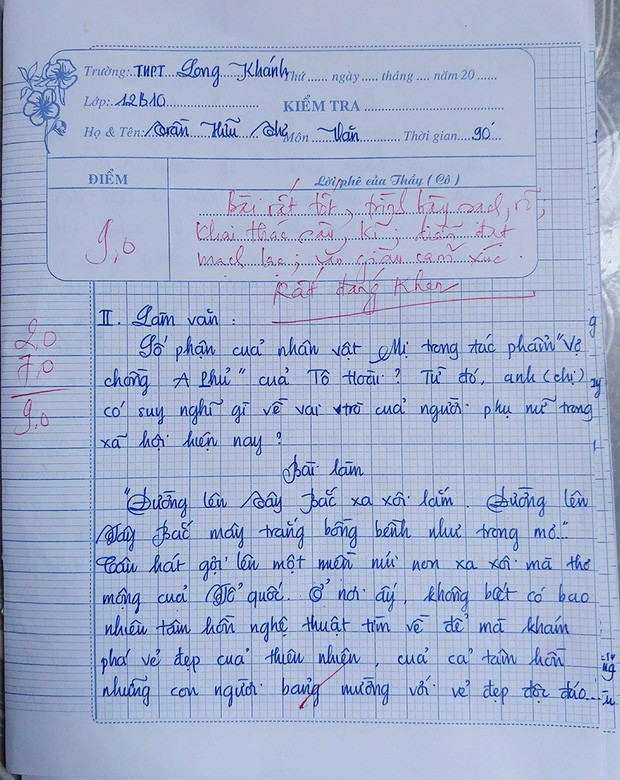 Trường: THPT Long Khánh Thứ ...... ngày ..... tháng .... năm 20 ......
Lớp: 12B10 KIỂM TRA
Họ & Tên: Trần Hữu Môn Văn Thời gian 90'
ĐIỂM
Lời phê của Thầy ( Cô )
9,0
Bài rất tốt, trình bày sạch, rõ;
Khai thác sâu, kĩ; diễn đạt
mạch lạc; văn giàu cảm xúc.
Rất đáng khen
2,0
7,0
9,0
II. Làm văn :
Số phận cuả nhân vật Mị trong tác phẩm "Vợ
chồng A Phủ" cuả Tô Hoài ? Từ đó, anh (chị)
có suy nghĩ gì về vai trò cuả người phụ nữ trong
xã hội hiện nay ?
Bài làm
"Đường lên Tây Bắc xa xôi lắm. Đường lên
Tây Bắc mây trắng bồng bềnh như trong mơ..."
Câu hát gợi lên một miền núi non xa xôi mà thơ
mộng cuả Tổ quốc. Ở nơi ấy, không biết có bao
nhiêu tâm hồn nghệ thuật tìm về để mà khám
phá vẻ đẹp cuả thiên nhiên, cuả cả tâm hồn
những con người bang mường với vẻ đẹp độc đáo...